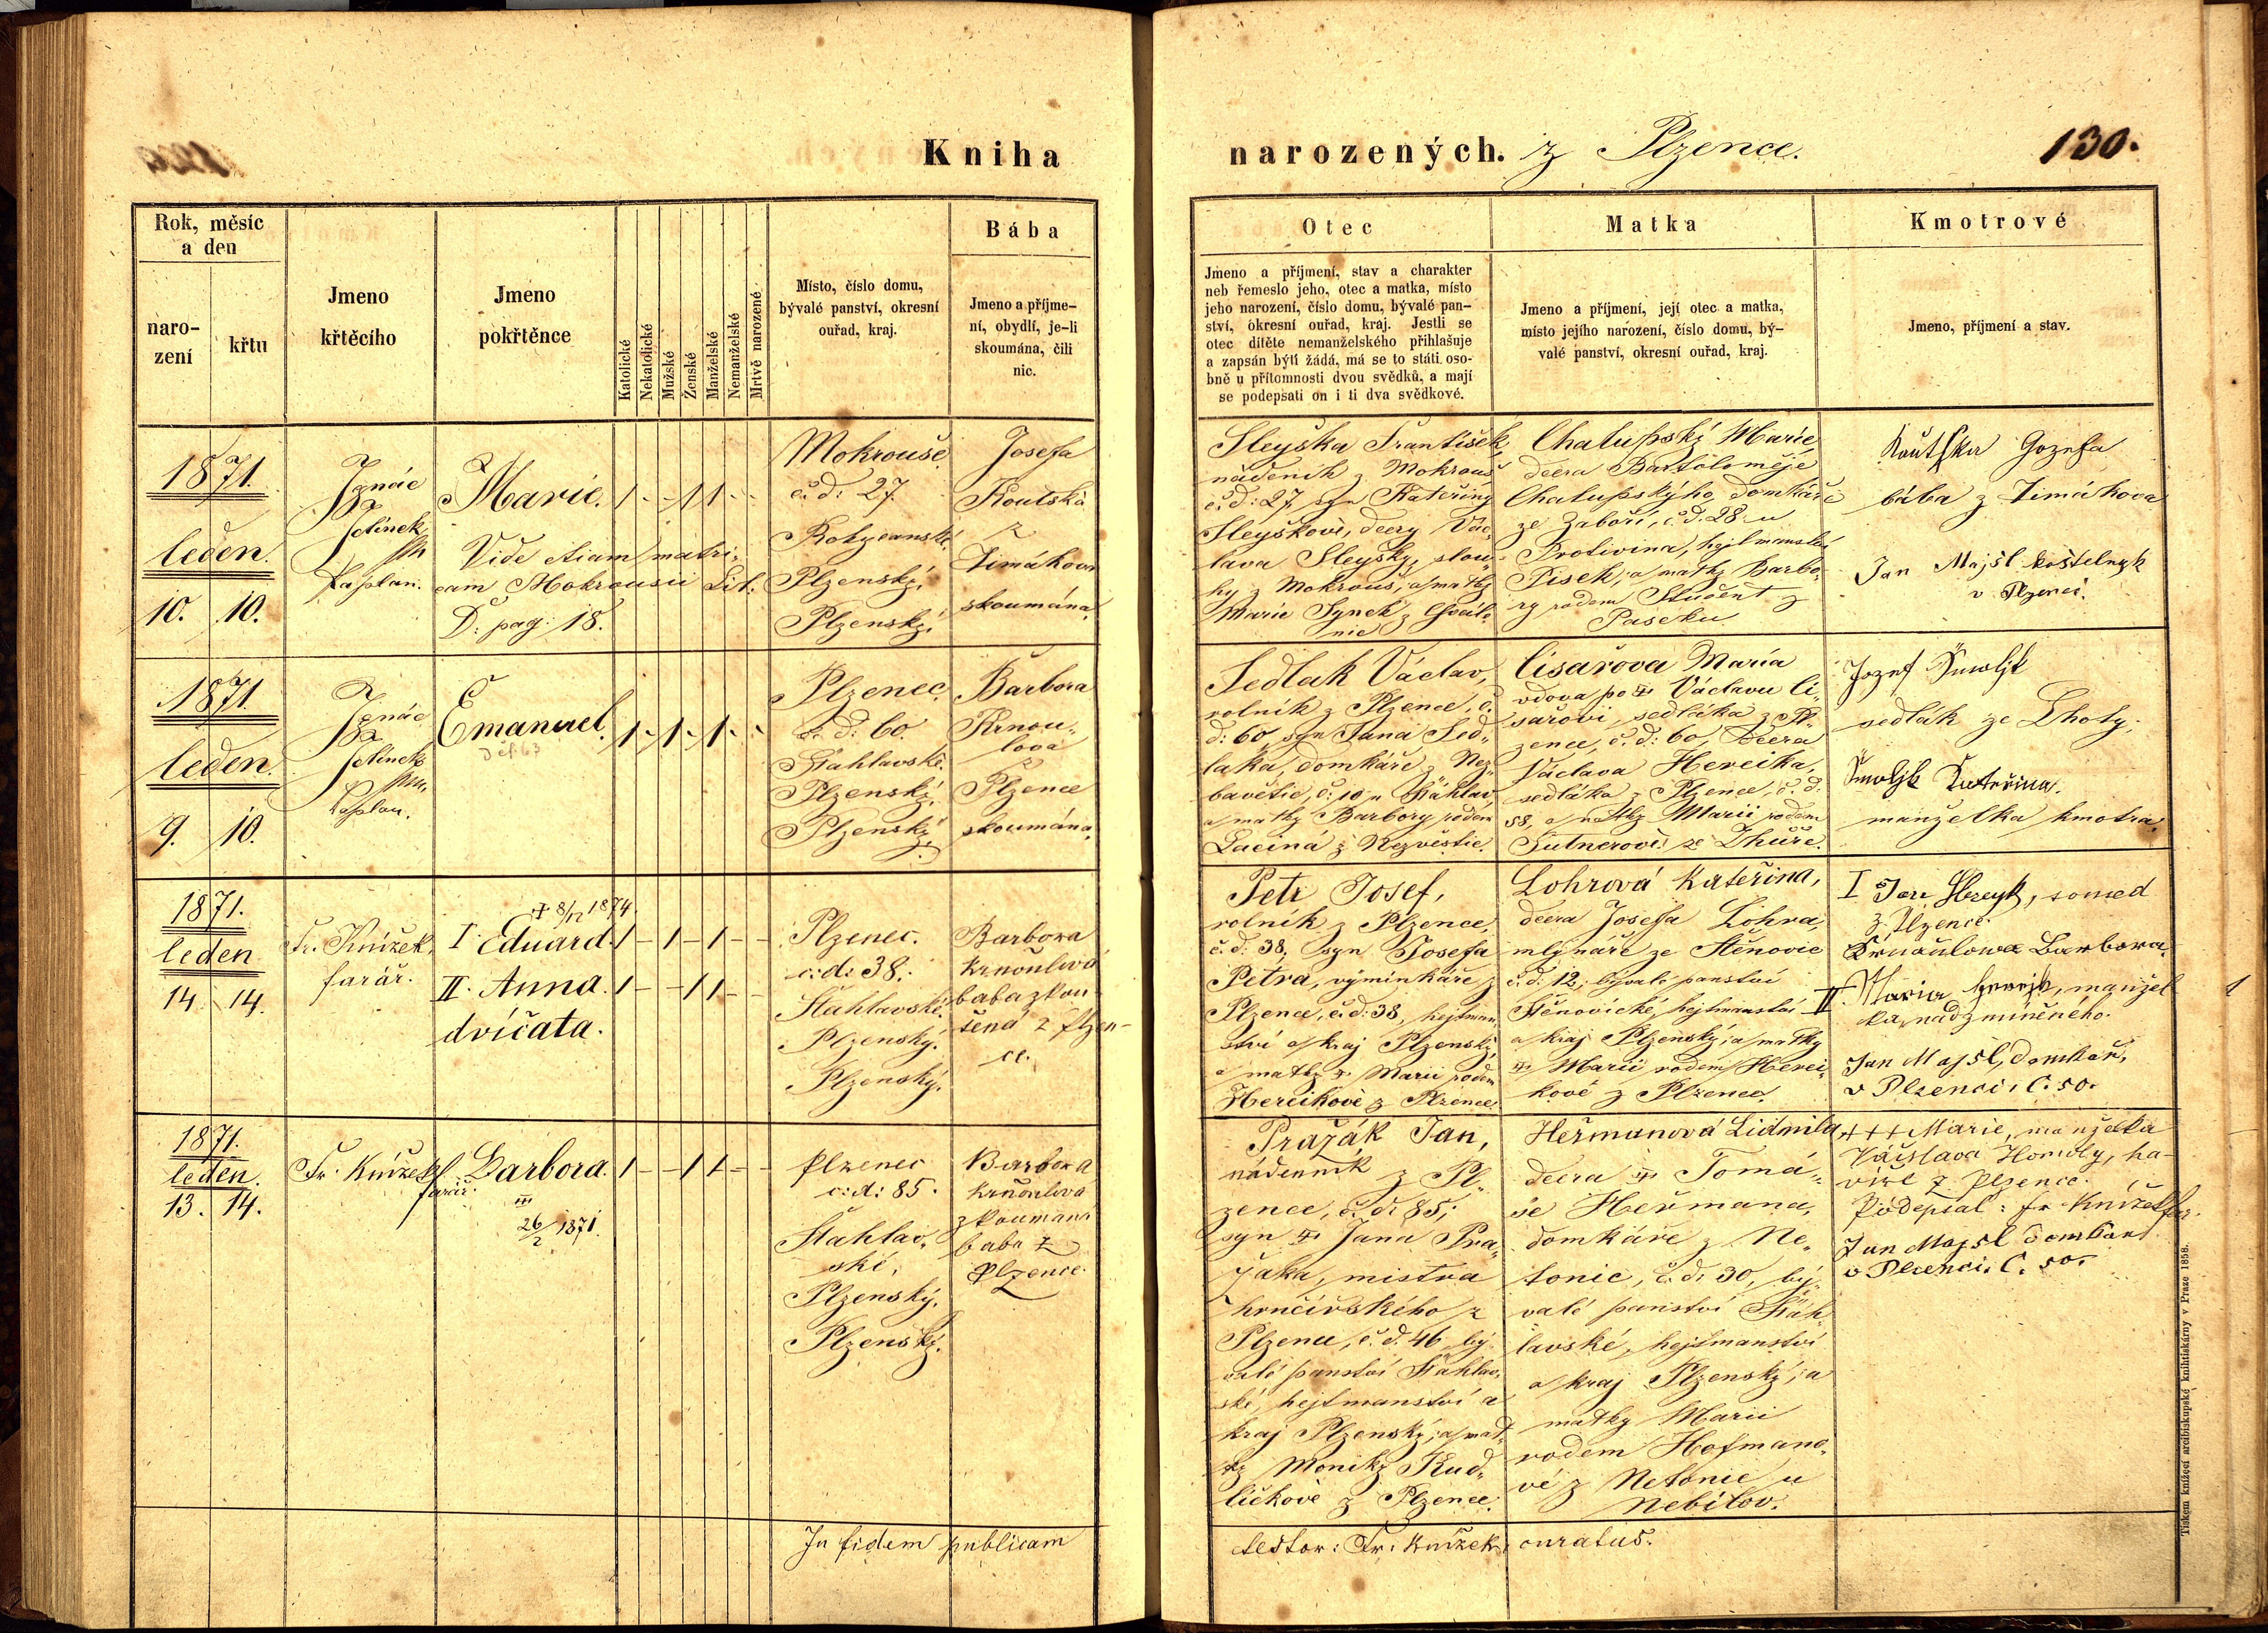 Kniha
narozených. z Plzence.
130.
Rok, měsíc
a den
naro-
zení
křtu
Jmeno
křtěcího
Jmeno
pokřtěnce
Katolické
Nekatolické
Mužské
Ženské
Manželské
Nemanželské
Mrtvě narozené
Místo, číslo domu,
bývalé panství, okresní
ouřad, kraj.
Bába
Jmeno a příjme-
ní, obydlí, je-li
skoumána, čili
nic.
Otec
Jmeno a příjmení, stav a charakter
neb řemeslo jeho, otec a matka, místo
jeho narození, číslo domu, bývalé pan-
ství, okresní ouřad, kraj. Jestli se
otec dítěte nemanželského přihlašuje
a zapsán býti žádá, má se to státi oso-
bně u přítomnosti dvou svědků, a mají
se podepsati on i ti dva svědkové.
Matka
Jmeno a příjmení, její otec a matka,
místo jejího narození, číslo domu, bý-
valé panství, okresní ouřad, kraj.
Kmotrové
Jmeno, příjmení a stav.
1871.
leden.
10. 10.
Ignác
Jelínek
Kaplan.
Marie.
1 - - 1 1 - -
Vide etiam matri-
cam Mokrousii Lit:
D. pag: 18.
Mokrouše
č. d: 27.
Rokycanské,
Plzenský,
Plzenský.
Josefa
Koutská
z
Timákova
skoumána.
Sleyška František,
nádeník z Mokrouš
č. d: 27, syn Kateřiny
Sleyškové, dcery Vác-
lava Sleyšky, slou-
hy z Mokrouš, a matky
Marie Synek z Chvál-
nic
Chalupský Marie,
dcera Bartoloměje
Chalupskýho, domkáře
ze Záboří, č. d. 28 u
Protivína, hejtmanství
Písek, a matky Barbo-
ry rodem Student z
Paseku.
Koutska Jozefa
bába z Timákova
Jan Majsl kostelnyk
v Plzenci.
1871
leden.
9. 10.
Ignác
Jelínek
Kaplan.
Emanuel.
1 - 1 - 1 - -
Plzenec.
č. d: 60.
Šťahlavské.
Plzenský,
Plzenský.
Barbora
Krnou-
lová
z
Plzence
skoumána.
Sedlak Václav,
rolník z Plzence, č.
d: 60, syn Jana Sed-
laka, domkáře z Nez-
bavětic, č: 10 u Šťáhlav,
a matky Barbory rodem
Laciná z Nezvěstic.
Císařova Maria
vdova po † Václavu Cí-
sařovi, sedláka z Pl-
zence, č. d: 60, Dcera
Václava Hereika,
sedláka z Plzence, č. d.
58, a matky Marii rodem
Gutnerové ze Lhůře.
Jozef Šmolik
sedlák ze Lhoty,
Šmolik Kateřina.
manželka kmotra.
1871.
leden
14. 14.
Fr. Knížek,
farář.
† 8/12 1874.
I. Eduard. 1 - 1 - 1 - -
II. Anna. 1 - - 1 1 - -
dvíčata.
Plzenec.
c: d: 38.
Šťahlavské.
Plzenský.
Plzenský.
Barbora
Krnoulová
baba zkou
šena z Plzen-
ce.
Petr Josef,
rolník z Plzence,
č. d. 38, syn Josefa
Petra, výminkáře z
Plzence, č. d: 38, hejtman-
ství a kraj Plzenský,
a matky † Marii rodem
Hereikové z Plzence.
Lohrová Kateřina,
dcera Josefa Lohra,
mlynáře ze Stěnovic
č. d. 12, bývalé panství
Stěnovické, hejtmanství
a kraj Plzenský; a matky
† Marii rodem Herei-
kové z Plzence.
I Jan Hereyk, soused
z Plzence.
Krnoulowa Barbora.
II. Maria Hereyk, manžel
ka nadzmíněného.
Jan Majsl, domkář,
v Plzenci, č. 50.
1871.
leden.
13. 14.
Fr. Knížek
farář.
Barbora. 1 - - 1 1 - -
III
26/2 1871.
Plzenec
c: d: 85.
Šťahlav-
ské,
Plzenský.
Plzenský.
Barbora
Krnoulová
zkoumaná
baba z
Plzence.
Pražák Jan,
nádenník z Pl-
zence, č. d: 85;
syn † Jana Pra-
žáka, mistra
hrnčířského z
Plzence, č. d. 46, bý-
valé panství Šťáhlav-
ské, hejtmanství a
kraj Plzenský; a mat-
ky Moniky Kud-
ličkové z Plzence.
Heřmanová Lidmila
dcera † Tomá-
še Heřmana,
domkáře z Ne-
tonic, č. d. 30, bý-
valé panství Šťáh-
lavské, hejtmanství
a kraj Plzenský; a
matky Marii
rodem Hofmano-
vé z Netonic u
Nebílov.
+++ Marie, manželka
Václava Homoly, ha-
víře z Plzence.
Podepsal: Fr. Knížek far.
Jan Majsl domkař
v Plzenci. Č. 50.
In fidem publicam
testor: Fr. Knížek, curatus.
Tiskem knížecí arcibiskupské knihtiskárny v Praze 1858.